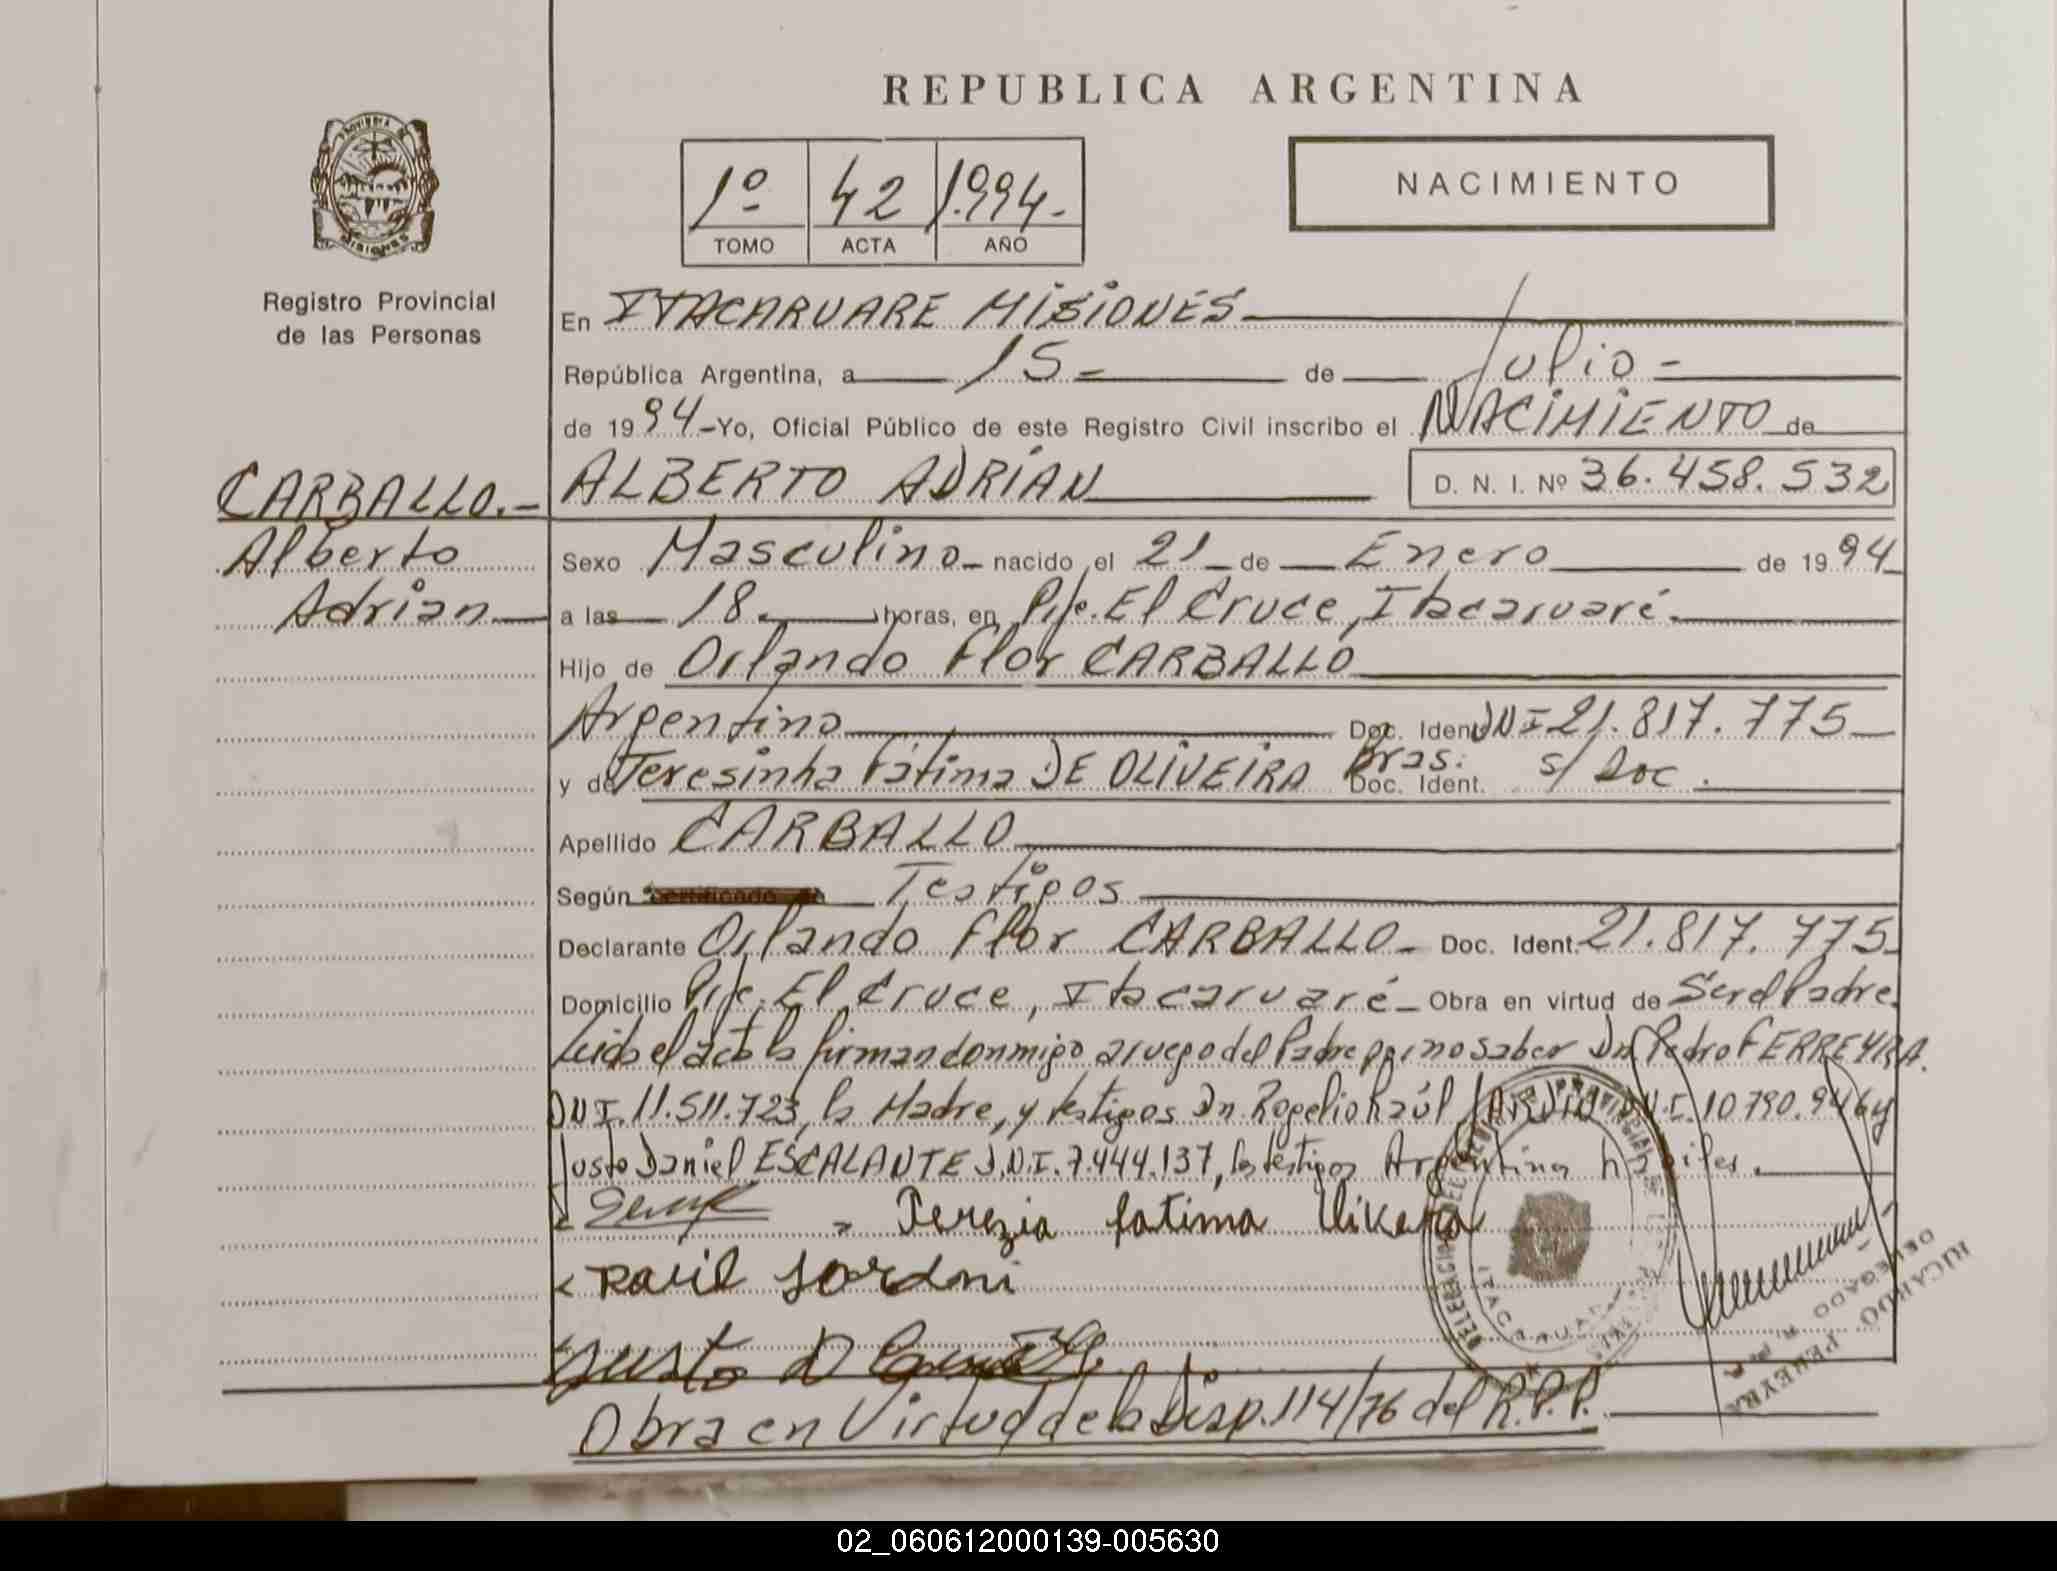 REPUBLICA ARGENTINA
PROVINCIA DE
MISIONES
Registro Provincial
de las Personas
1º 42 1.994.-
TOMO ACTA AÑO
NACIMIENTO
En ITACARUARE MISIONES
República Argentina, a 15- de Julio-
de 1994-Yo, Oficial Público de este Registro Civil inscribo el NACIMIENTO de
CARBALLO.- ALBERTO ADRIAN D. N. I. Nº 36.458.532
Alberto
Adrian
Sexo Masculino- nacido el 21 de Enero de 1994
a las 18. horas, en Pje. El Cruce, Itacaruaré.
Hijo de Orlando Flor CARBALLO
Argentino Doc. Ident. DNI 21.817.775
y de Teresinha Fátima DE OLIVEIRA Bras: Doc. Ident. s/Doc.
Apellido CARBALLO
Según Certificado de Testigos
Declarante Orlando Flor CARBALLO- Doc. Ident. 21.817.775
Domicilio Pje. El Cruce, Itacaruaré- Obra en virtud de Ser el Padre.
Leida el acta la firman conmigo a ruego del Padre por no saber Dn. Pedro FERREYRA.
DNI. 11.511.723, la Madre, y testigos Dn. Rogelio Raúl D.N.I. 10.790.946 y
Justo Daniel ESCALANTE D.N.I. 7.444.137, los testigos Argentinos hábiles.
Terezia fatima
Raul
Justo D
RICARDO PEREYRA
DELEGADO
Obra en Virtud de la Disp. 114/76 del R.P.P.
02_060612000139-005630